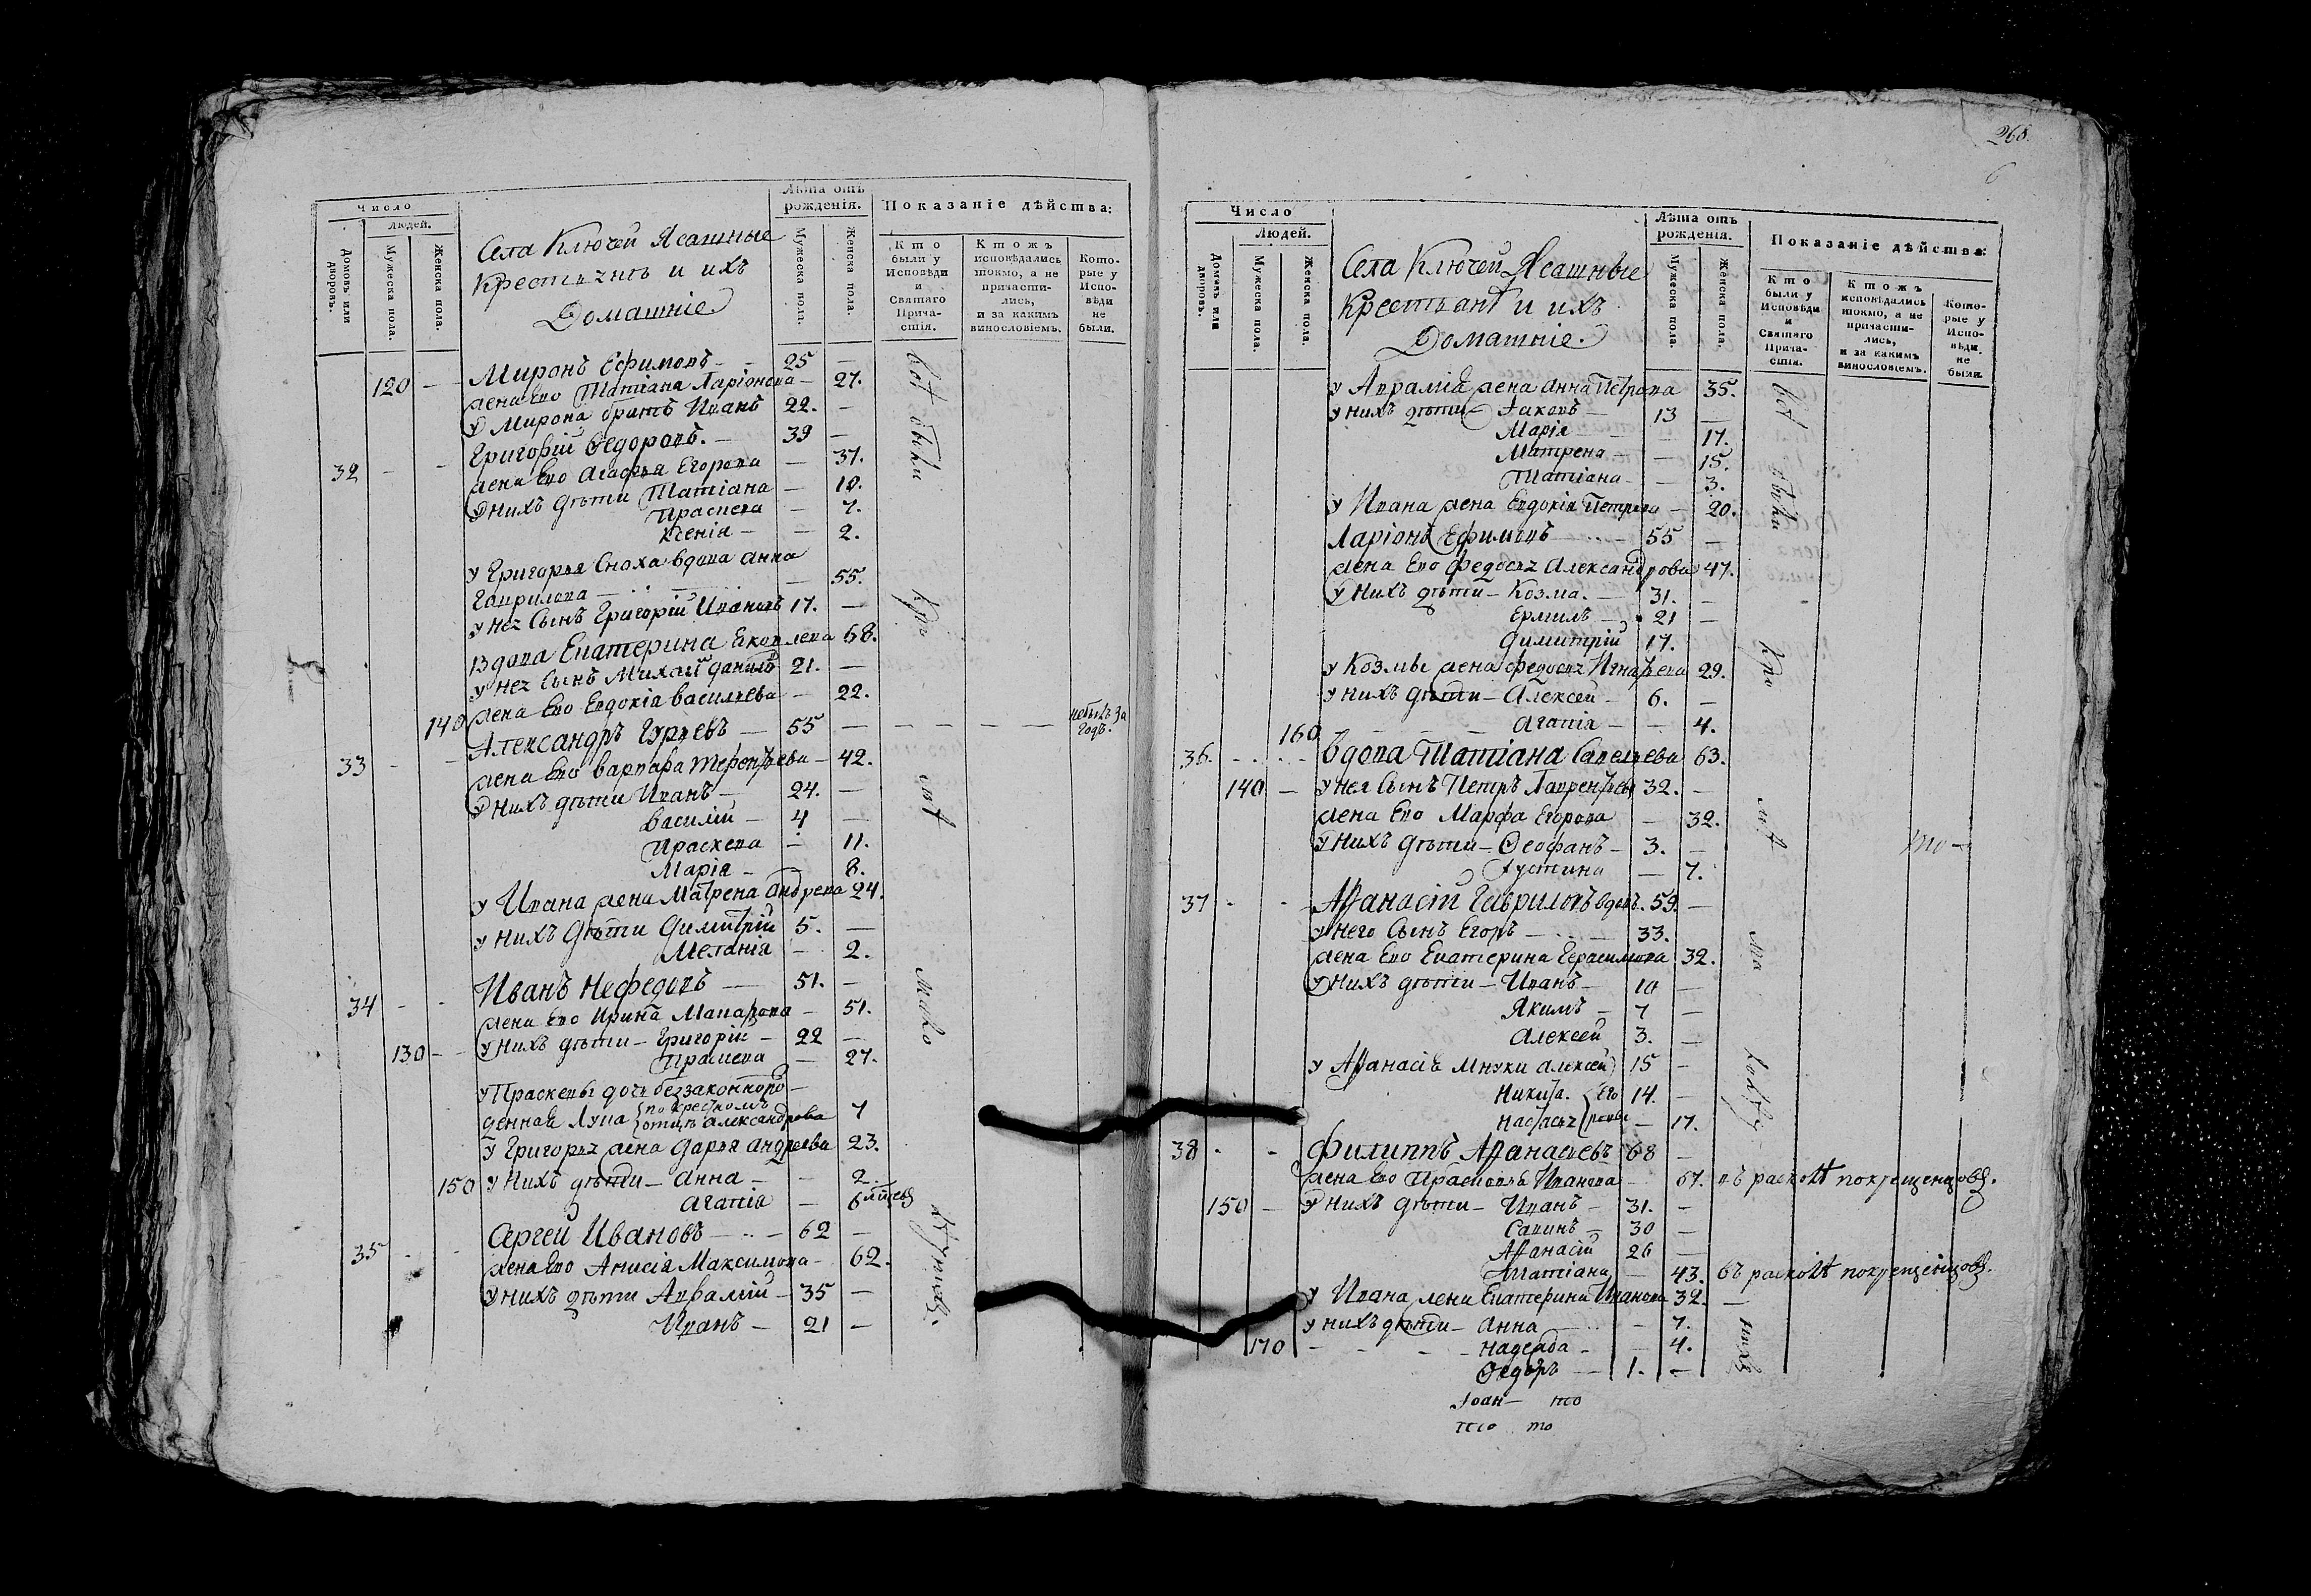 Число
Людей.
Домовъ или дворовъ.
Мужеска пола.
Женска пола.
Села Ключей Ясашные
Крестьяне и ихъ
Домашніе
Лѣта отъ
рожденія.
Мужеска пола.
Женска пола.
Показаніе дѣйства:
Кто
были у
Исповѣди
и
Святаго
Прича-
стія.
Ктожъ
исповѣдались
токмо, а не
причасти-
лись,
и за какимъ
винословіемъ.
Кото-
рые у
Испо-
вѣди
не
были.
Миронъ Ефимовъ — 25 —
120 — жена Его Татіана Ларіонова — 27.
У Мирона братъ Иванъ 22. —
Григорій Ѳедоровъ. — 39 —
32 — — жена Его Агафья Егорова — 37.
У нихъ дѣти Татіана — 10.
Праскева — 7.
Ксенія — — 2.
У Григорья Сноха вдова Анна
Гаврилова — — 55.
у нея Сынъ Григорій Ивановъ 17. —
Вдова Екатерина Яковлева 68.
у нея Сынъ Михаил Данилов 21. —
жена Его Евдокія Васильева — 22.
140 Александръ Гурьевъ — 55 — — — — — небылъ за
годъ.
33 — — жена Его Варвара Терентьева — 42.
У нихъ дѣти Иванъ — 24. —
Василій — 4 —
Праскева — 11.
Марія — 8.
у Ивана жена Матрена Андреева 24.
у нихъ Дѣти Димитрій 5. —
Меланія — 2.
Иванъ Нефедовъ — 51. —
34 — — жена Его Ирина Макарова — 51.
130 — — у нихъ дѣти — Григорій — 22 —
Праскева — 27.
у Праскевы дочь беззаконноро-
жденная Лупа по крестномъ
отцѣ Александрова 7
У Григорья жена Дарья Андреева 23.
150 у нихъ дѣти — Анна — — 2.
Агапія — 6 мѣсяц
Сергей Ивановъ — 62 —
35 — — жена Его Анисія Максимова — 62.
у нихъ дѣти Авраамій — 35 —
Иванъ — 21 —
всѣ были
268.
6
Число
Людей.
Домовъ или дворовъ.
Мужеска пола.
Женска пола.
Села Ключей Ясашные
Крестьянѣ и ихъ
Домашніе.
Лѣта отъ
рожденія.
Мужеска пола.
Женска пола.
Показаніе дѣйства:
Кто
были у
Исповѣди
и
Святаго
Прича-
стія.
Ктожъ
исповѣдались
токмо, а не
причасти-
лись,
и за какимъ
винословіемъ.
Кото-
рые у
Испо-
вѣди
не
были.
у Аврамія жена Анна Петрова 35.
у нихъ дѣти — Іаковъ — 13 —
Марія — — 17.
Матрена — — 15.
Татіана — — 3.
у Ивана жена Евдокія Петрова — 20.
Ларіонъ Ефимовъ — 55 —
жена Его Федосья Александрова 47.
у нихъ дѣти — Козма. — 31. —
Ермилъ — 21 —
Димитрій 17. —
у Козмы жена Федосья Игнатьева 29.
у нихъ дѣти — Алексей — 6. —
160 Агапія — — 4.
36. Вдова Татіана Савельева 63.
140 — у нея Сынъ Петръ Лаврентьевъ 32. —
жена Его Марфа Егорова — 32.
у нихъ дѣти — Ѳеофанъ — 3. —
Іустина — 7.
37 — — Афанасій Гавриловъ вдовъ. 59. —
у него Сынъ Егоръ — 33.
жена Его Екатерина Герасимова 32.
у нихъ дѣти — Иванъ — 10 —
Якимъ — 7 —
Алексей 3. —
у Афанасія Мнуки Алексей 15 —
Никита. Его 14. —
Настасья — 17.
38 — — Филиппъ Афанасьевъ 68 —
жена Его Прасковья Иванова — 67. въ расколѣ покрещенцовъ.
150 — у нихъ дѣти — Иванъ — 31. —
Савинъ — 30 —
Афанасій 26 —
Татіана — 43. въ расколѣ покрещенцовъ.
у Ивана жена Екатерина Иванова 32. —
у нихъ дѣти — Анна — 7.
170 — — — Надежда — 4.
Ѳедоръ — 1. —
Іоан — то
то то
всѣ были